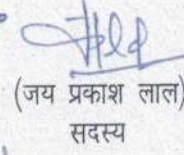 (जय प्रकाश लाल)
सदस्य